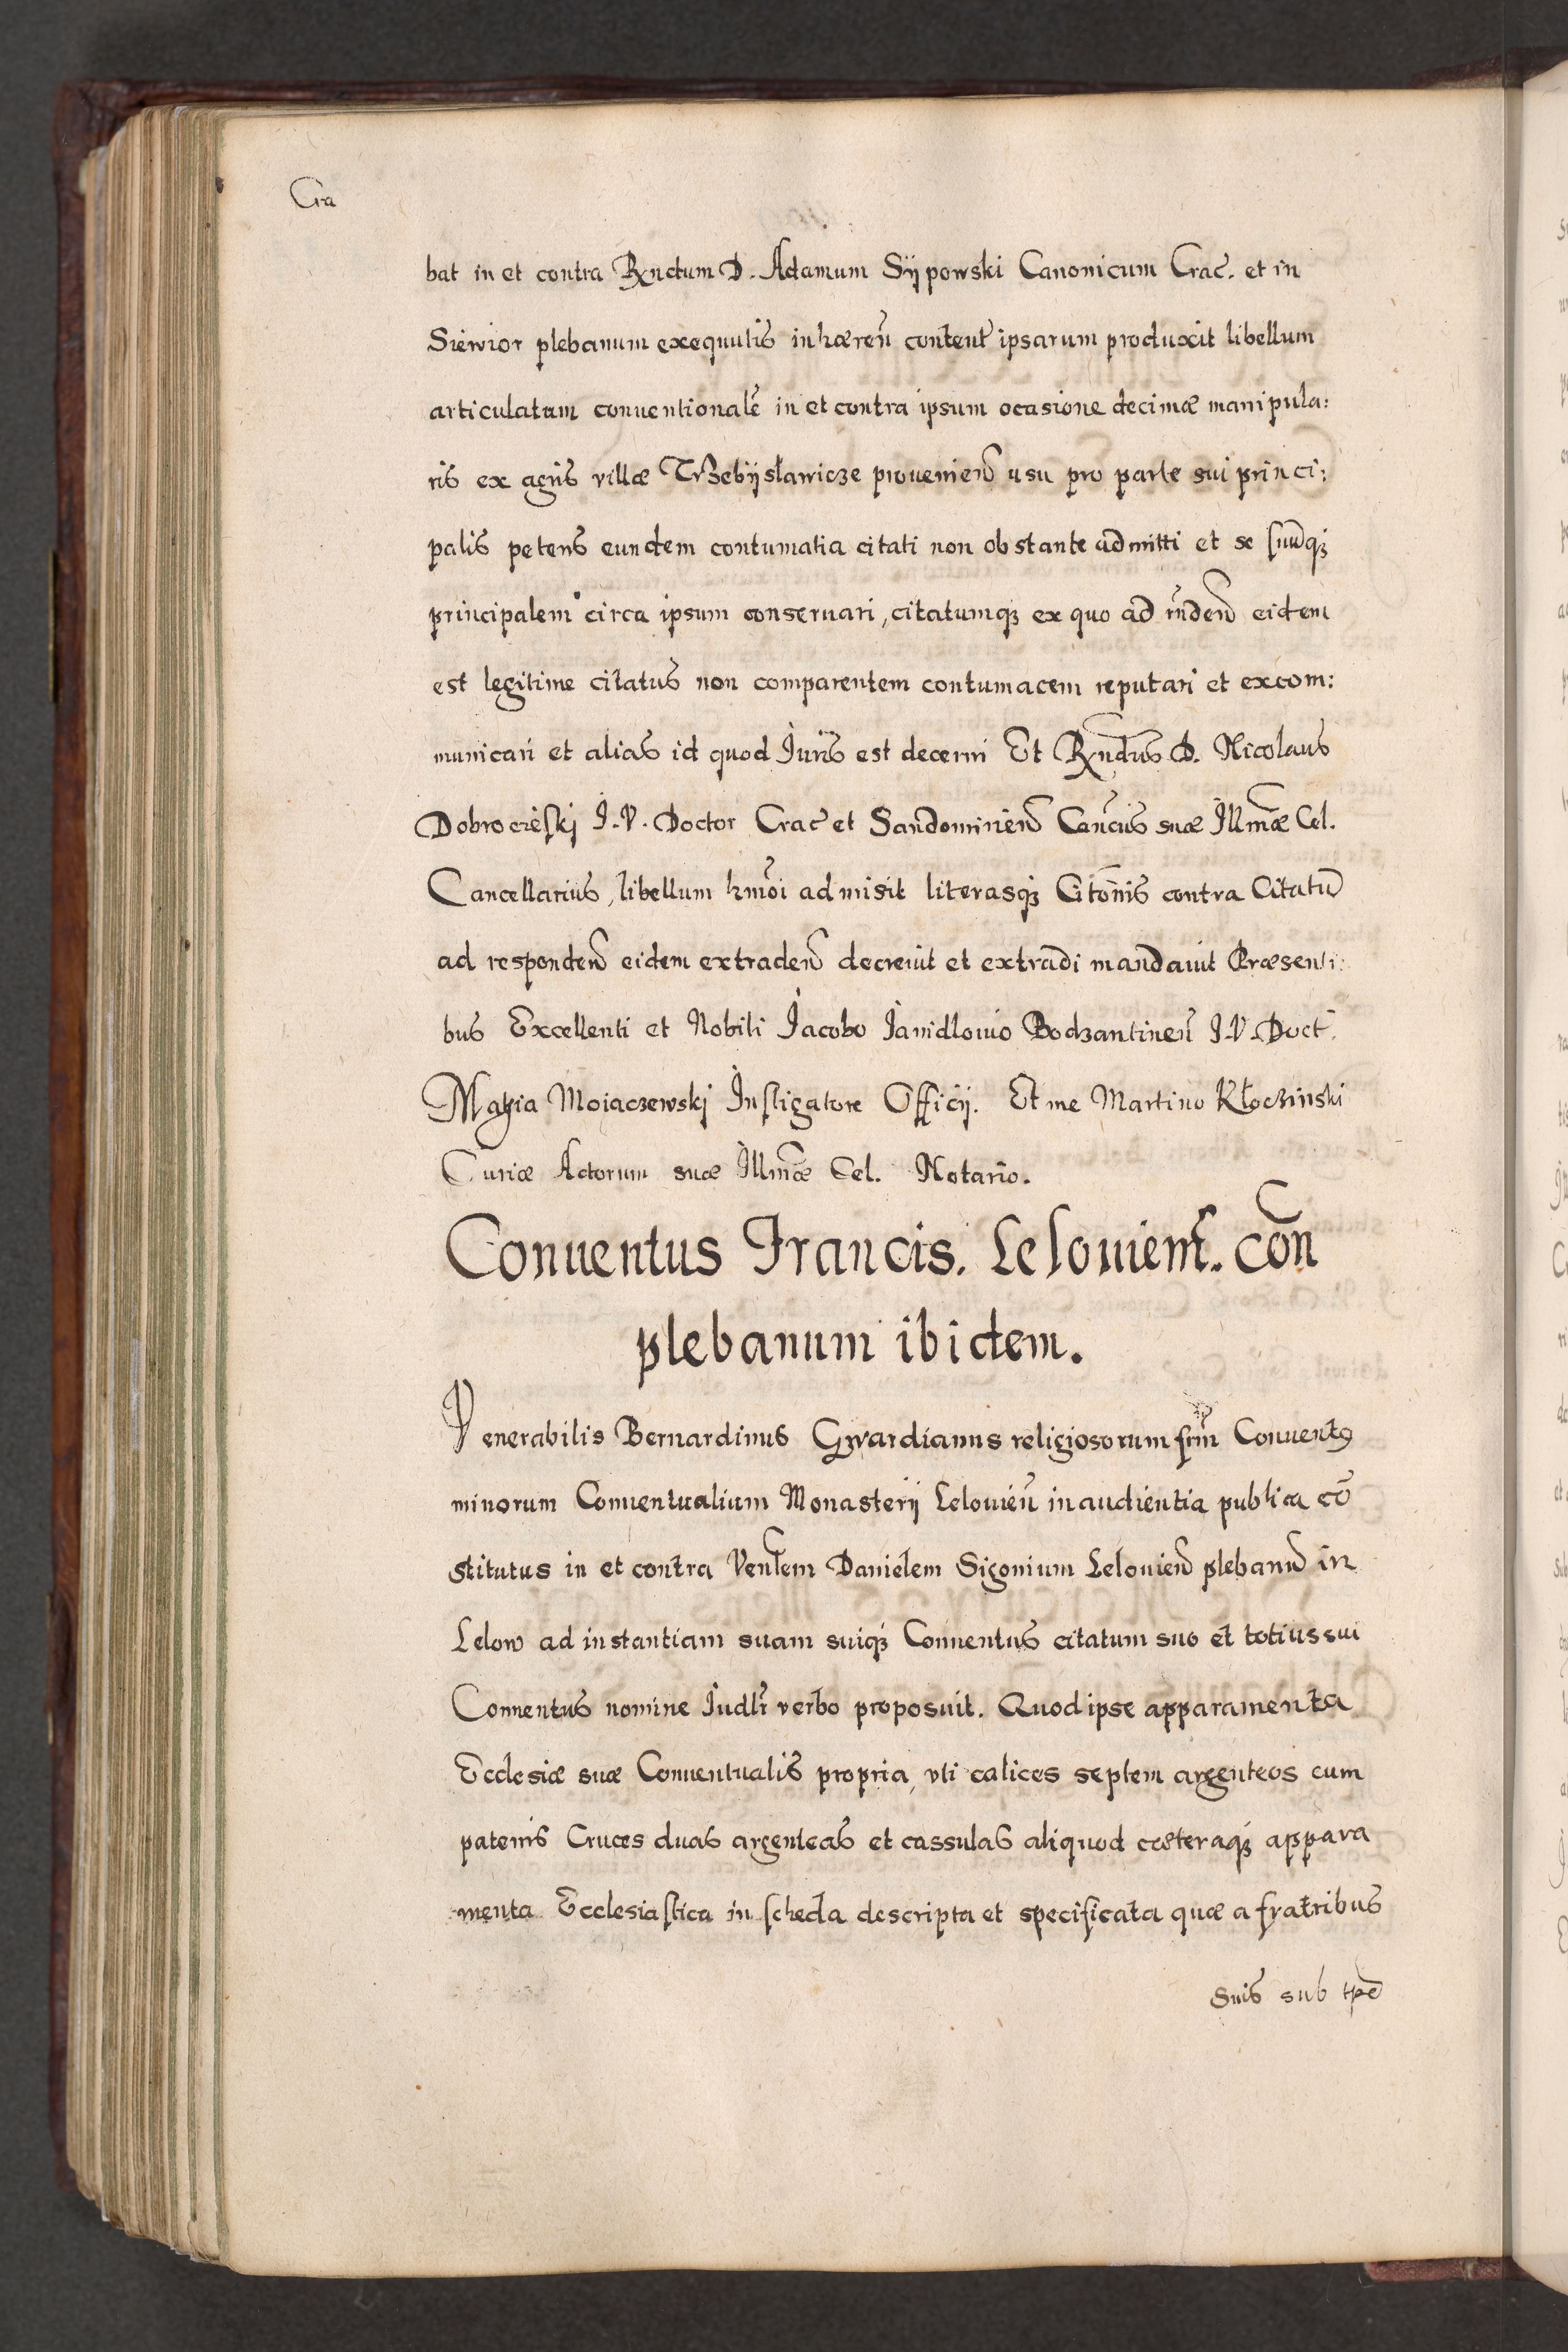 Cra
bat in et contra Rndum D. Adamum Sÿpowski Canonicum Crac. et in
Siewior plebanum exequutis inhæreñ content̃ ipsarum produxit libellum
articulatum conuentionalẽ in et contra ipsum ocasione decimæ manipula:
ris ex agris villæ Trzebÿsławicze prouenieñ usu pro parte sui princi:
palis petens eundem contumatia citati non obstante admitti et se suũq3
principalem circa ipsum conseruari, citatumq3 ex quo ad rñdeñ eidem
est legitime citatus non comparentem contumacem reputari et excom:
municari et alias id quod Juris est decerni Et Rñdus D. Nicolaus
Dobrocieski J. V. Doctor Crac et Sandomirieñ Cañcus suæ Illmæ Cel.
Cancellarius, libellum hmõi admisit literasq3 Citõnis contra Citatũ
ad respondeñ eidem extradeñ decreuit et extradi mandauit Præsenti:
bus Excellenti et Nobili Jacobo Janidlouio Bodzantineñ J. V. Doct.
Mathia Moiaczewskj Instigatore Officij. Et me Martino Kłoczinski
Curiæ Actorum suæ Illmæ Cel. Notario.
Conuentus Francis. Lelouieñ. cõn
plebanum ibidem.
Venerabilis Bernardinus Gwardianus religiosorum frũm Conuent9
minorum Conuentualium Monasterÿ Lelouieñ in audientia publica cõ
stitutus in et contra Venlem Danielem Sigonium Lelouieñ plebanũ in
Lelow ad instantiam suam suiq3 Conuentus citatum suo et totius sui
Conuentus nomine Judlr̃ verbo proposuit. Quod ipse apparamenta
Ecclesiæ suæ Conuentualis propria, vti calices septem argenteos cum
patenis Cruces duas argenteas et cassulas aliquod cæteraq3 appara
menta Ecclesiastica in scheda descripta et specificata quæ a fratribus
suis sub tpẽ